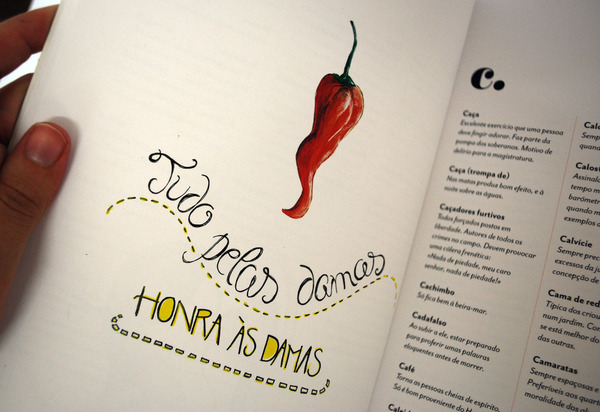 Tudo
pelas damas
HONRA ÀS DAMAS
c.
Caça
Excelente exercício que uma pessoa
deve fingir adorar. Faz parte da
pompa dos soberanos. Motivo de
delírio para a magistratura.
Caça (trompa de)
Nos matos produz bom efeito, e à
noite sobre as águas.
Caçadores furtivos
Todos forçados postos em
liberdade. Autores de todos os
crimes no campo. Devem provocar
uma cólera frenética:
«Nada de piedade, meu caro
senhor, nada de piedade!»
Cachimbo
Só fica bem à beira-mar.
Cadafalso
Ao subir a ele, estar preparado
para proferir umas palavras
eloquentes antes de morrer.
Café
Torna as pessoas cheias de espírito.
Só é bom proveniente do H
Sempr
quand
Assinal
tempo m
barómetr
quando m
exemplos d
Calvície
Sempre prec
excessos da ju
concepção de
Cama de red
Típica dos criou
num jardim. Con
se está melhor do
das outras.
Camaratas
Sempre espaçosas e
Preferíveis aos quart
moralidade dos al